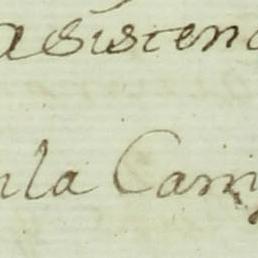 asisten
nla Cam